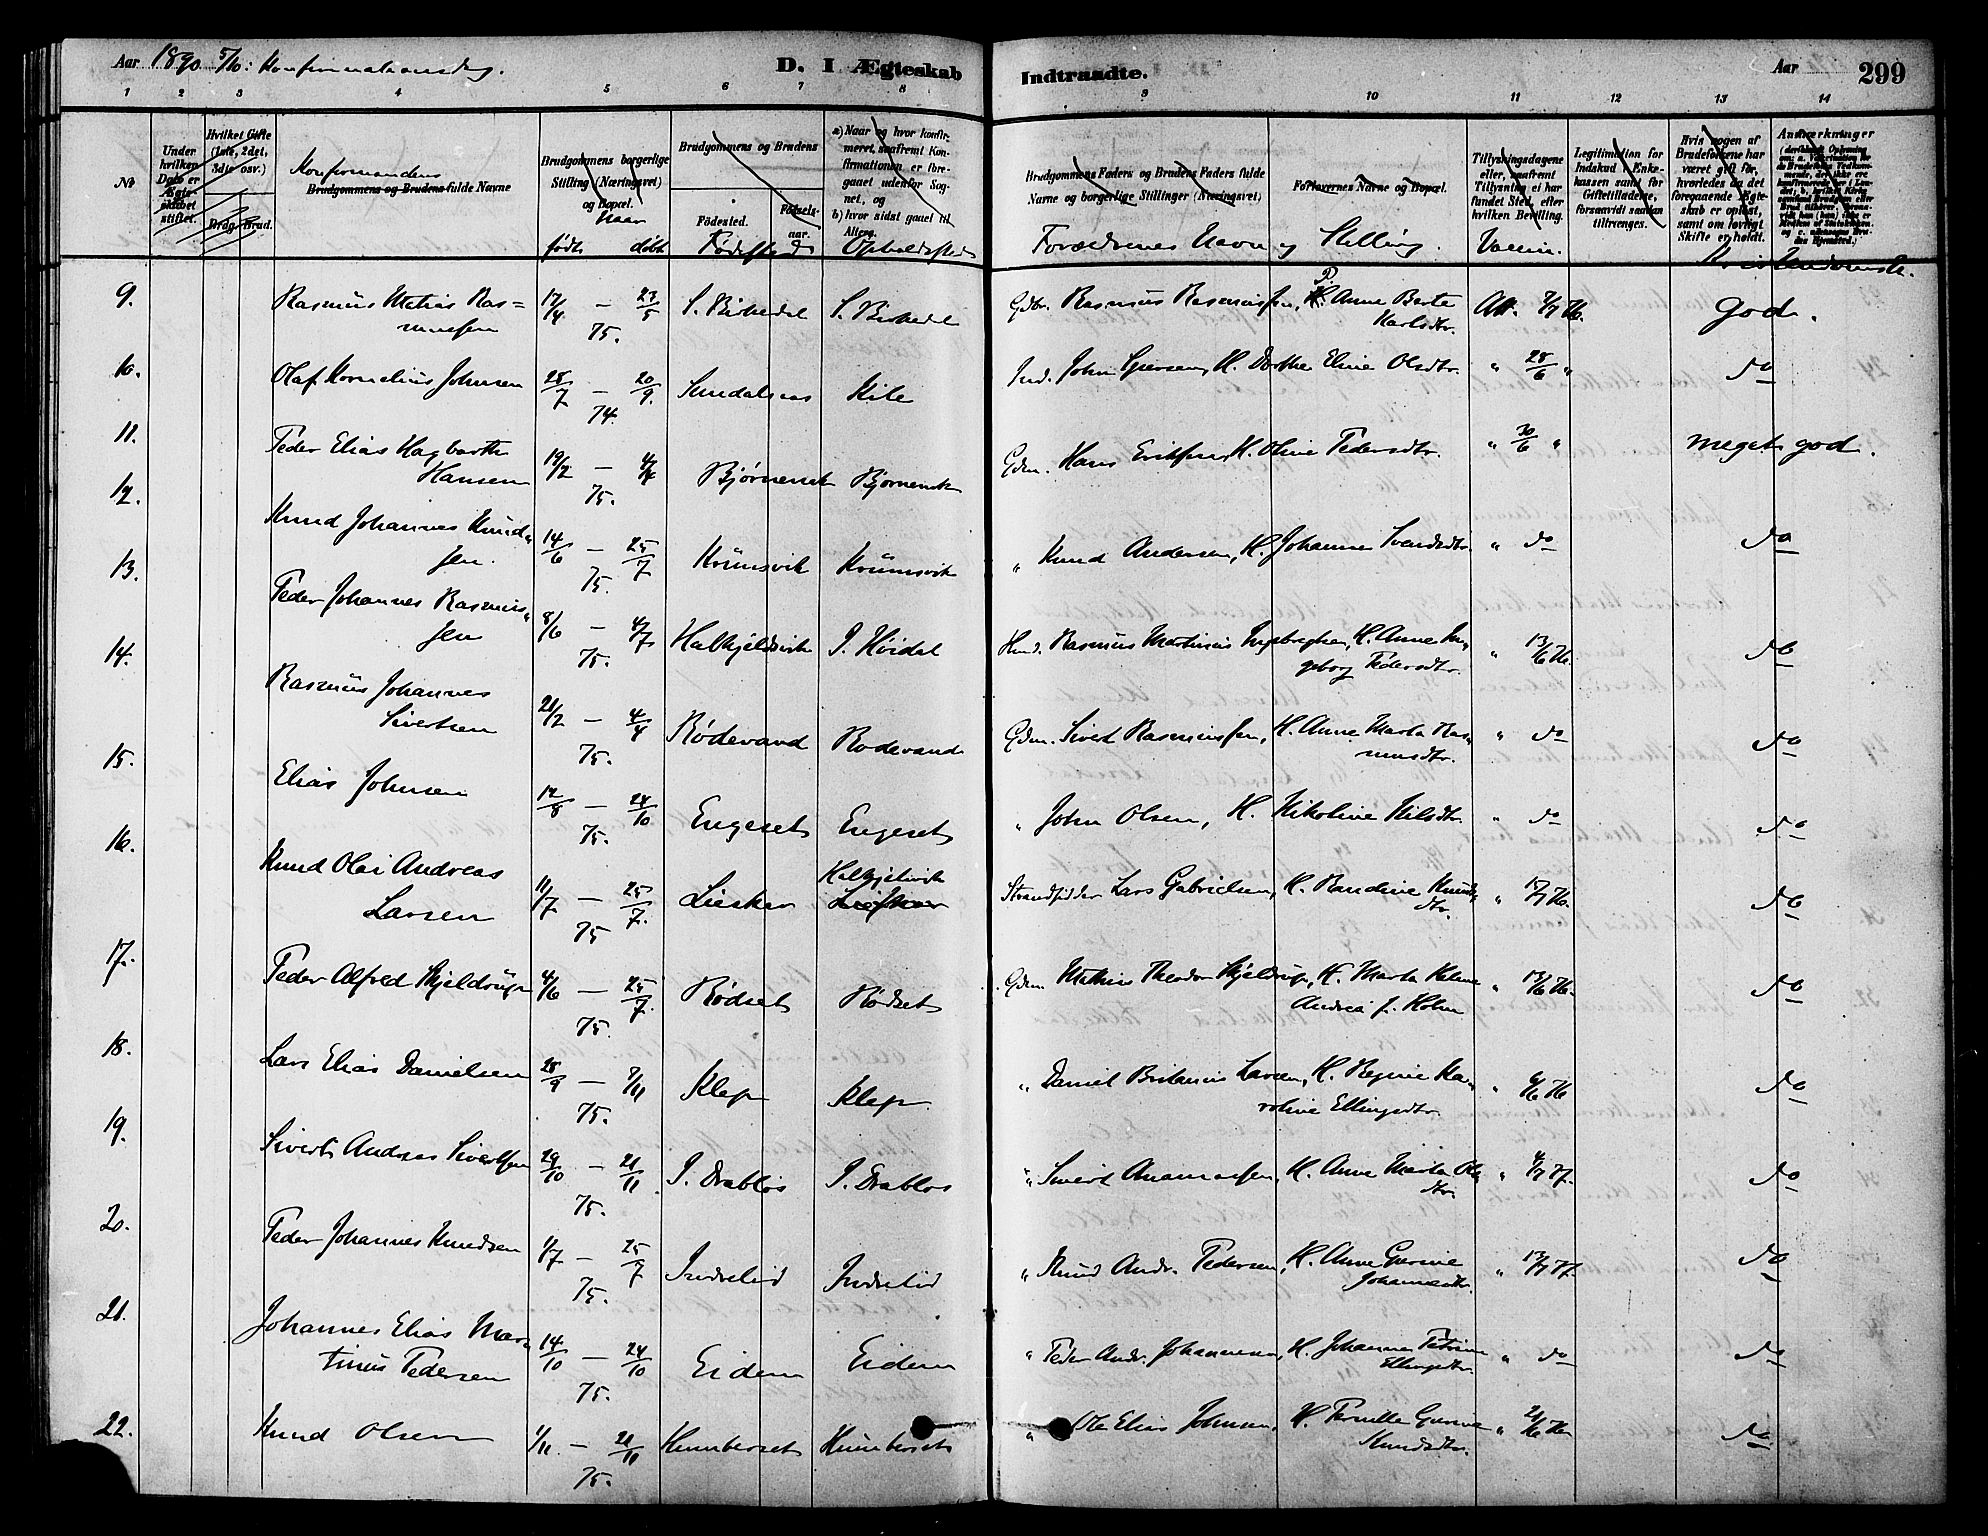 Aar 1890 5/10: Konfirmationsdag. D. I Ægteskab Indtraadte. Aar 299
1 2 3 4 5 6 7 8 9 10 11 12 13 14
No
Under hvilken Dato er Ægteskabet stiftet.
Hvilket Gifte (1ste, 2det, 3die osv.)
Brdg. Brud.
Konfirmandens
Brudgommens og Brudens fulde Navne
Brudgommens borgerlige Stilling (Næringsvei) og Bopæl.
Naar
født døbt
Brudgommens og Brudens
Fødested. Fødselsaar.
Fødested
a) Naar og hvor konfirmeret, saafremt Konfirmationen er foregaaet udenfor Sognet, og
b) hvor sidst gaaet til Alters.
Opholdssted
Brudgommens Faders og Brudens Faders fulde Navne og borgerlige Stillinger (Næringsvei)
Forlovernes Navne og Bopæl.
Forældrenes Navn og Stilling.
Tillysningsdagene eller, saafremt Tillysning ei har fundet Sted, efter hvilken Bevilling.
Vaccin.
Legitimation for Indskud i Enkekassen samt for Giftetilladelse, forsaavidt saadan tiltrænges.
Hvis nogen af Brudefolkene har været gift før, hvorledes da det foregaaende Ægteskab er opløst, samt om lovligt Skifte er holdt.
Anmærkninger
Kristendomsk.
9. Rasmus Matias Rasmussen 17/4 — 23/5 75. S. Birkedal S. Birkedal Gdbr. Rasmus Rasmussen, P. Anne Berte Karlsdtr. Att. 7/7 76. god.
10. Olaf Kornelius Johnsen 28/7 — 20/9 74. Sundalsaas Kile Ind. John Iversen, H. Dorthe Eline Olsdtr. " 28/6 " do
11. Peder Elias Hagbarth Hansen 19/2 — 4/4 75. Bjørneset Bjørneset Gdm. Hans Eriksen, H. Oline Pedersdtr. " 30/6 " meget god.
12. Knud Johannes Knudsen. 14/6 — 25/7 75. Krumsvik Krumsvik " Knud Andersen, H. Johanne Svendsdtr. " do do
13. Peder Johannes Rasmussen 8/6 — 4/7 75. Halkjeldsvik I. Høidal Husm. Rasmus Martinus Ingebrigtsen, H. Anne Ingeborg Pedersdtr. " 13/6 76. do
14. Rasmus Johannes Sivertsen 21/2 — 4/4 75. Rødevand Rødevand Gdm. Sivert Rasmussen, H. Anne Marta Rasmusdtr. " do do
15. Elias Johnsen 12/8 — 24/10 75. Engeset Engeset " John Olsen, H. Nikoline Nilsdtr. " do do
16. Knud Olai Andreas Larsen 11/7 — 25/7. 75 Liesker Halkjelsvik Strandsidder Lars Gabrielsen, H. Randine Knudsdtr. " 17/7 76. do
17. Peder Alfred Skjeldrup 4/6 — 25/7. 75. Rødset Rødset Gdm. Mathias Theodor Skjeldrup, H. Marta Andrea f. Holm " 13/6 76. do
18. Lars Elias Danielsen 28/9 — 7/11 75. Klep Klep. " Daniel Larsen, H. Regine Karoline Ellingsdtr. " 6/6 76 do
19. Sivert Andreas Sivertsen 29/10 — 21/11 75. I. Drabløs I. Drabløs " Sivert H. Anne Marta Olsdtr. " 4/7 77. do
20. Peder Johannes Knudsen 1/7 — 25/7 75. Indrelid Indrelid " Knud Andr. Pedersen, H. Anne Gurine Johannesdtr. " 13/7 77. do
21. Johannes Elias Martinus Pedersen 14/10 — 24/10 75. Eidem Eidem " Peder Andr. Johannesen, H. Johanne Petrine Ellingsdtr. " do do
22. Knud Olsen 1/11. — 21/11 75. Humberset Humberset " Ole Elias Johnsen, H. Pernille Gurine Knudsdtr. " 21/6 76 do